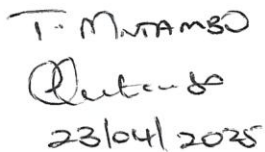 T. MUTAMBO
23/04/2025